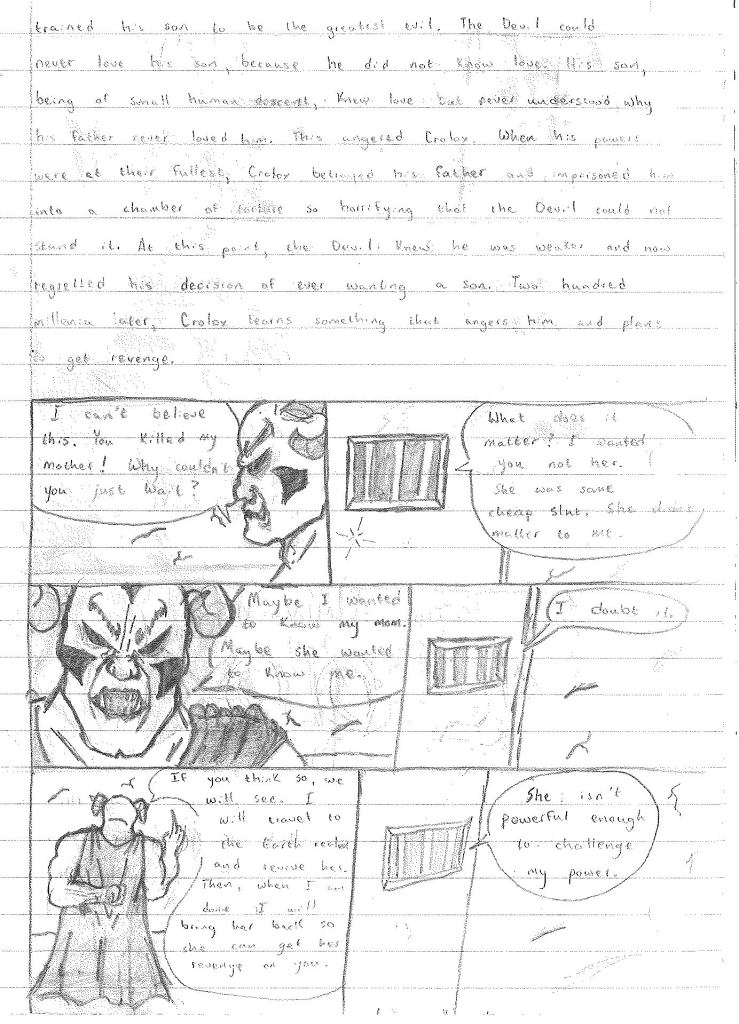 trained his son to be the greatest evil. The Devil could
never love his son, because he did not know love. His son,
being of small human descent, knew love but never understood why
his father never loved him. This angered Crolox. When his powers
were at their fullest, Crolox betrayed his father and imprisoned him
into a chamber of torture so horrifying that the Devil could not
stand it. At this point, the Devil knew he was weaker and now
regretted his decision of ever wanting a son. Two hundred
millenia later, Crolox learns something that angers him and plans
to get revenge.
I can't believe
this. You killed my
mother! Why couldn't
you just wait?
What does it
matter? I wanted
you not her.
She was some
cheap slut. She does
matter to me.
Maybe I wanted
to know my mom.
Maybe she wanted
to know me.
I doubt it.
If you think so, we
will see. I
will travel to
the Earth realm
and revive her.
Then, when I am
done I will
bring her back so
she can get her
revenge on you.
She isn't
powerful enough
to challenge
my power.